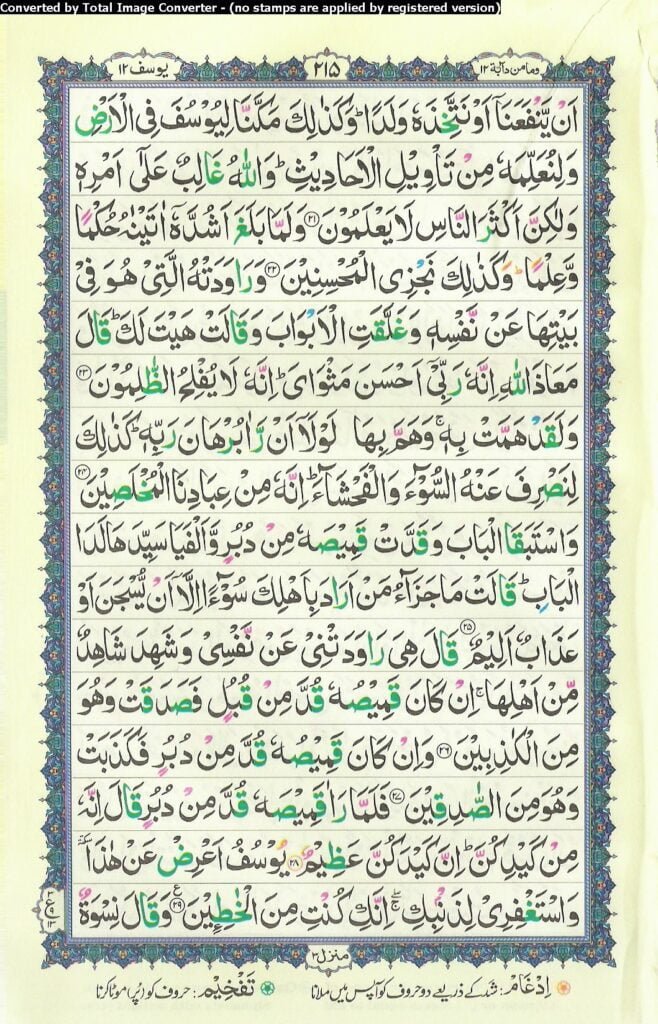 Converted by Total Image Converter - (no stamps are applied by registered version)
وما من دآبة ١٢
٢١٥
يوسف ١٢
اَنْ يَّنْفَعَنَاۤ اَوْ نَتَّخِذَهٗ وَلَدًا ؕ وَكَذٰلِكَ مَكَّنَّا لِيُوْسُفَ فِى الْاَرْضِ
وَلِنُعَلِّمَهٗ مِنْ تَاْوِيْلِ الْاَحَادِيْثِ ؕ وَاللّٰهُ غَالِبٌ عَلٰٓى اَمْرِهٖ
وَلٰكِنَّ اَكْثَرَ النَّاسِ لَا يَعْلَمُوْنَ ۝٢١ وَلَمَّا بَلَغَ اَشُدَّهٗۤ اٰتَيْنٰهُ حُكْمًا
وَّعِلْمًا ؕ وَكَذٰلِكَ نَجْزِى الْمُحْسِنِيْنَ ۝٢٢ وَرَاوَدَتْهُ الَّتِىْ هُوَ فِىْ
بَيْتِهَا عَنْ نَّفْسِهٖ وَغَلَّقَتِ الْاَبْوَابَ وَقَالَتْ هَيْتَ لَكَ ؕ قَالَ
مَعَاذَ اللّٰهِ اِنَّهٗ رَبِّىْۤ اَحْسَنَ مَثْوَاىَ ؕ اِنَّهٗ لَا يُفْلِحُ الظّٰلِمُوْنَ ۝٢٣
وَلَقَدْ هَمَّتْ بِهٖ ۚ وَهَمَّ بِهَا لَوْلَاۤ اَنْ رَّاٰ بُرْهَانَ رَبِّهٖ ؕ كَذٰلِكَ
لِنَصْرِفَ عَنْهُ السُّوْٓءَ وَالْفَحْشَآءَ ؕ اِنَّهٗ مِنْ عِبَادِنَا الْمُخْلَصِيْنَ ۝٢٤
وَاسْتَبَقَا الْبَابَ وَقَدَّتْ قَمِيْصَهٗ مِنْ دُبُرٍ وَّاَلْفَيَا سَيِّدَهَا لَدَا
الْبَابِ ؕ قَالَتْ مَا جَزَآءُ مَنْ اَرَادَ بِاَهْلِكَ سُوْٓءًا اِلَّاۤ اَنْ يُّسْجَنَ اَوْ
عَذَابٌ اَلِيْمٌ ۝٢٥ قَالَ هِىَ رَاوَدَتْنِىْ عَنْ نَّفْسِىْ وَشَهِدَ شَاهِدٌ
مِّنْ اَهْلِهَا ۚ اِنْ كَانَ قَمِيْصُهٗ قُدَّ مِنْ قُبُلٍ فَصَدَقَتْ وَهُوَ
مِنَ الْكٰذِبِيْنَ ۝٢٦ وَاِنْ كَانَ قَمِيْصُهٗ قُدَّ مِنْ دُبُرٍ فَكَذَبَتْ
وَهُوَ مِنَ الصّٰدِقِيْنَ ۝٢٧ فَلَمَّا رَاٰ قَمِيْصَهٗ قُدَّ مِنْ دُبُرٍ قَالَ اِنَّهٗ
مِنْ كَيْدِكُنَّ ؕ اِنَّ كَيْدَكُنَّ عَظِيْمٌ ۝٢٨ يُوْسُفُ اَعْرِضْ عَنْ هٰذَا ٚ سكتة
وَاسْتَغْفِرِىْ لِذَنْۢبِكِ ۖۚ اِنَّكِ كُنْتِ مِنَ الْخٰطِـِٕيْنَ ۝٢٩ ع وَقَالَ نِسْوَةٌ
٣
ع
٩
١٣
منزل ٣
اِدْغَام: شد کے ذریعے دو حروف کو آپس میں ملانا
تَفْخِيْم: حروف کو (پُر) موٹا کرنا